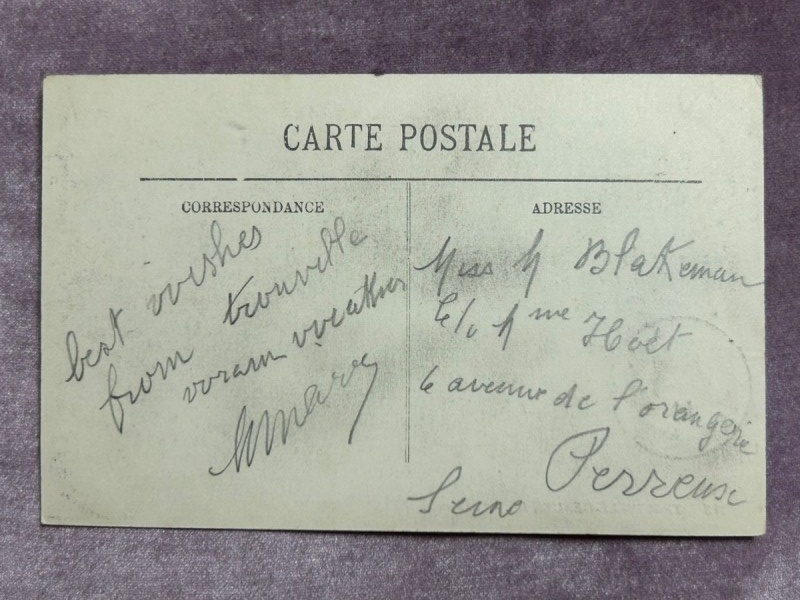 CARTE POSTALE
CORRESPONDANCE
best wishes
from trouville
waram weather
ADRESSE
Miss M Blakeman
C/o Mme Hoët
6 avenue de l'orangerie
Perreux
Seine